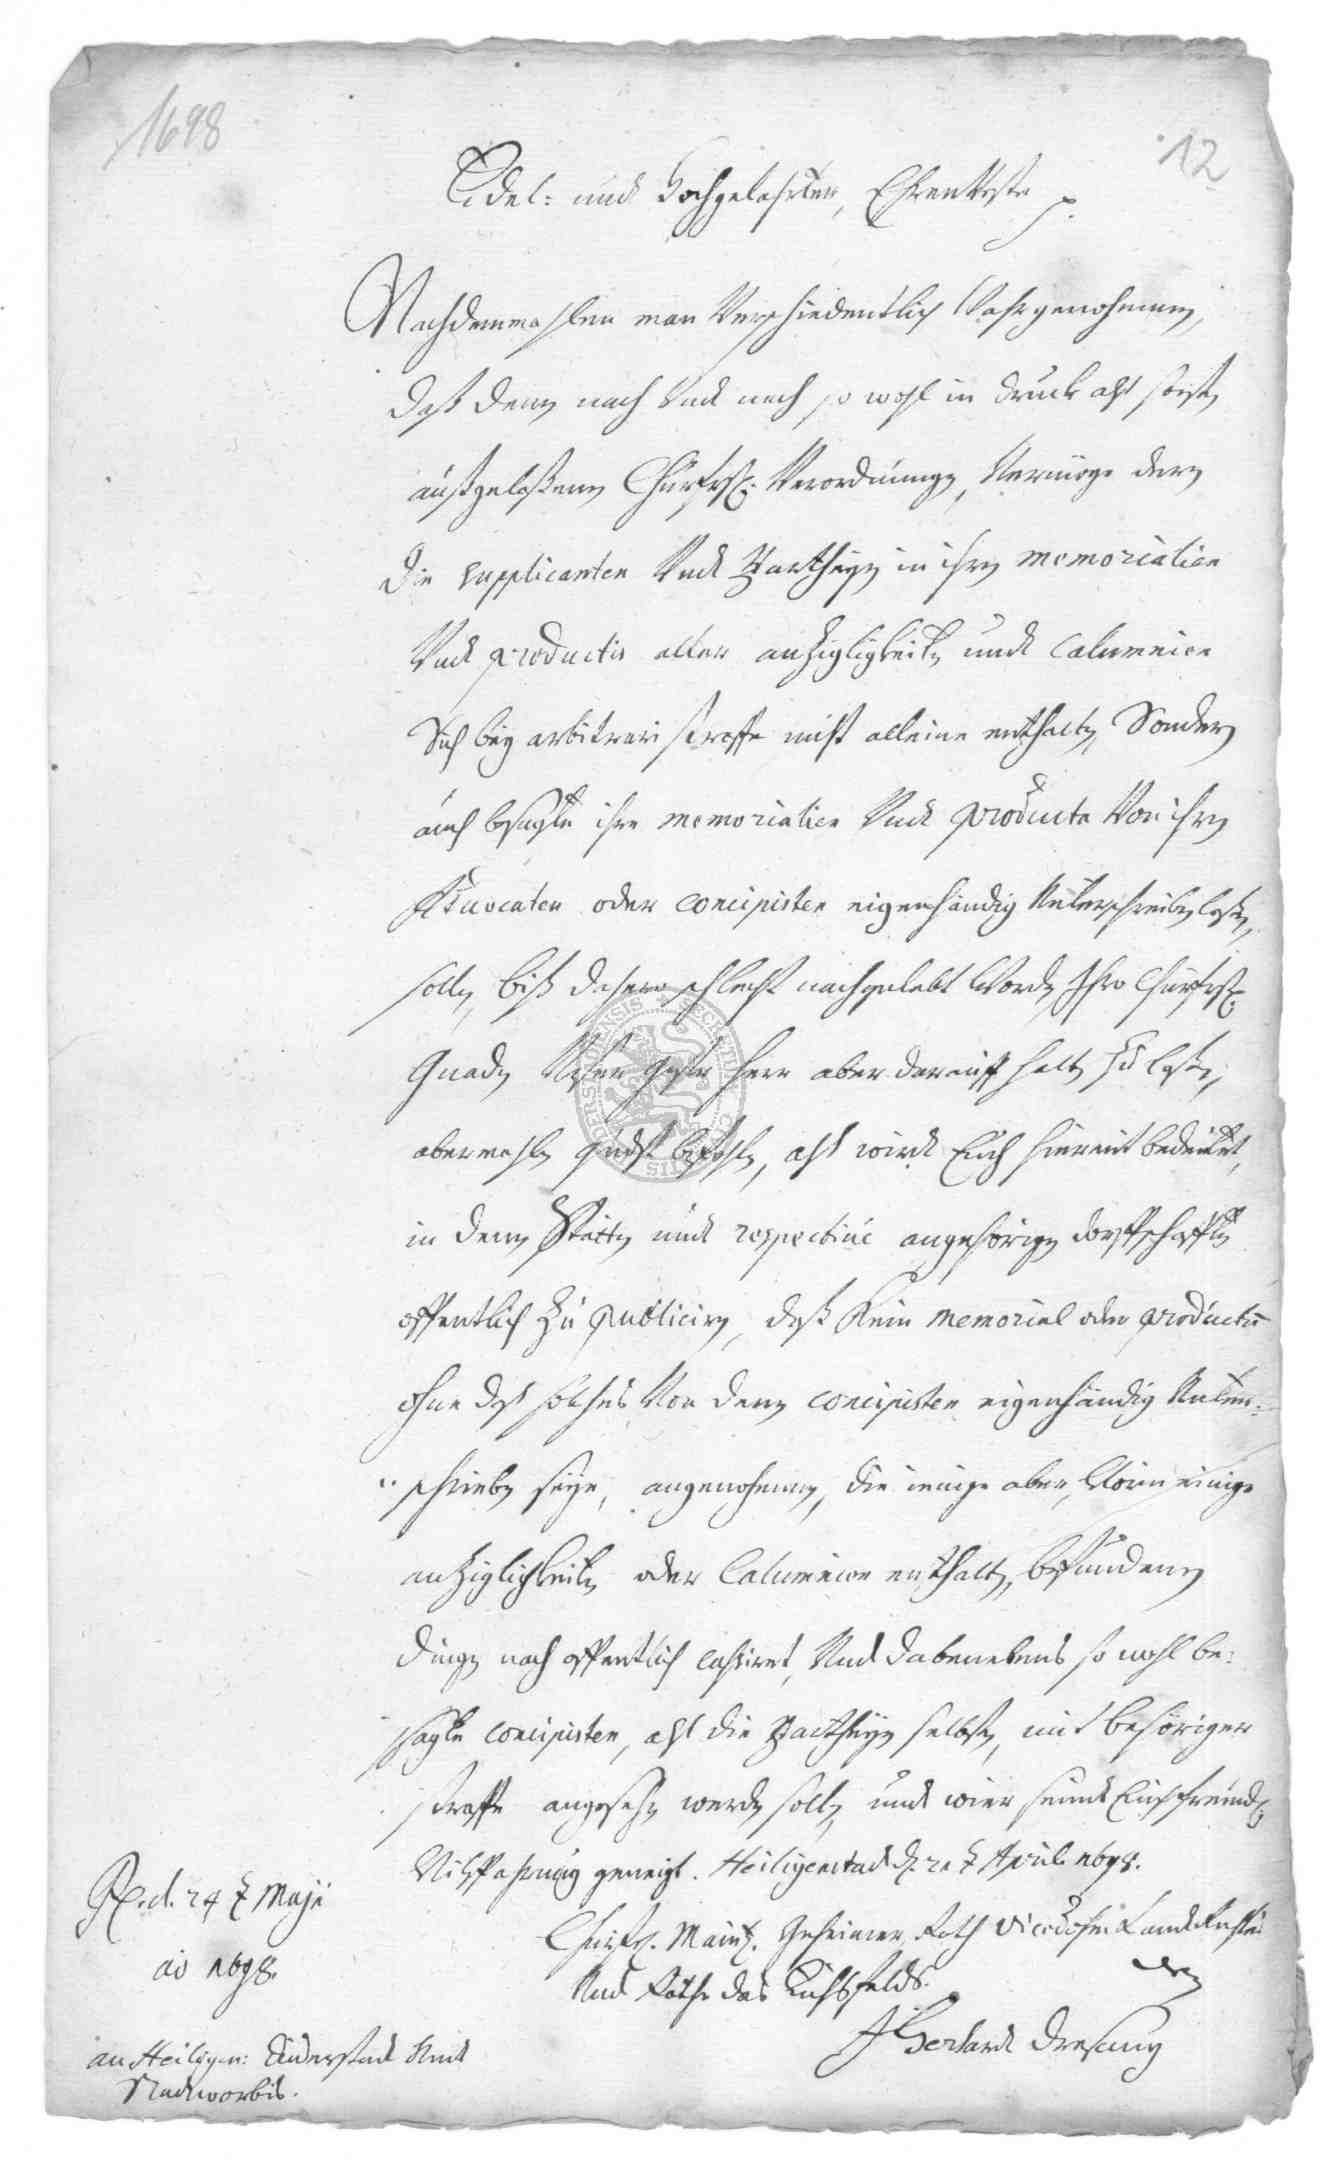 1698
12
Edel: undt Hochgelehrter, Ehrenveste p.
Nachdemmahlen man Verschiedentlich Wahrgenohmen,
daß denen nach Undt nach so wohl in druck alß sonsten
außgelaßenen Churfrstl. Verordnungen, Vermöge deren
die supplicanten Undt Partheyen in ihren memorialien
Undt productis aller anzigligkeiten undt calumnien
Sich bey arbitrari straffe nicht alleine enthalten, Sondern
auch besagte ihre memorialien Undt producta Von ihren
Advocaten oder concipisten eigenhändig Unterschreiben laßen,
sollen, biß dahero schlecht nachgelebt Worden Ihro Churfrstl.
Gnaden Unser gnster Herr aber darauff halten zu laßen,
abermahlen gndst befohlen, alß wirdt Euch hiermit bedeutet,
in denen Stätten undt respective angehörigen dorffschafften
offentlich zu publiciren, daß Kein memorial oder productu
ohne daß solches Von denen concipisten eigenhändig Unter:
schrieben seye, angenohmen, die ienige aber, Worin einige
anziglichkeiten oder Calumnien enthalten, befundenen
dingen nach offentlich cassiret, Undt dabenebens so wohl be:
sagte concipisten, alß die Partheyen selbsten, mit behöriger
straffe angesehen werden sollen, undt wier seindt Euch freundl.
Willfahrung geneigt. Heiligenstadt d. 21 t April 1698.
Churfl. Maintz. Geheimer Rath Vicedohm Landtrichter
Undt Räthe des Eichsfelds.
Gerhardt
Pr. d. 24 t Maji
ao 1698.
an Heiligen: Duderstadt Undt
Stadtworbis.